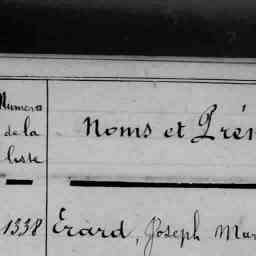 Numero
de la
liste
Noms et Prén
1338 Érard, Joseph Mar